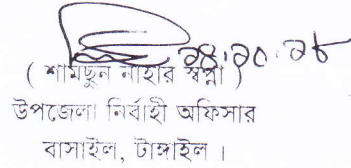 ২৪.১০.১৮
( শামছুন নাহার স্বপ্না )
উপজেলা নির্বাহী অফিসার
বাসাইল, টাঙ্গাইল ।